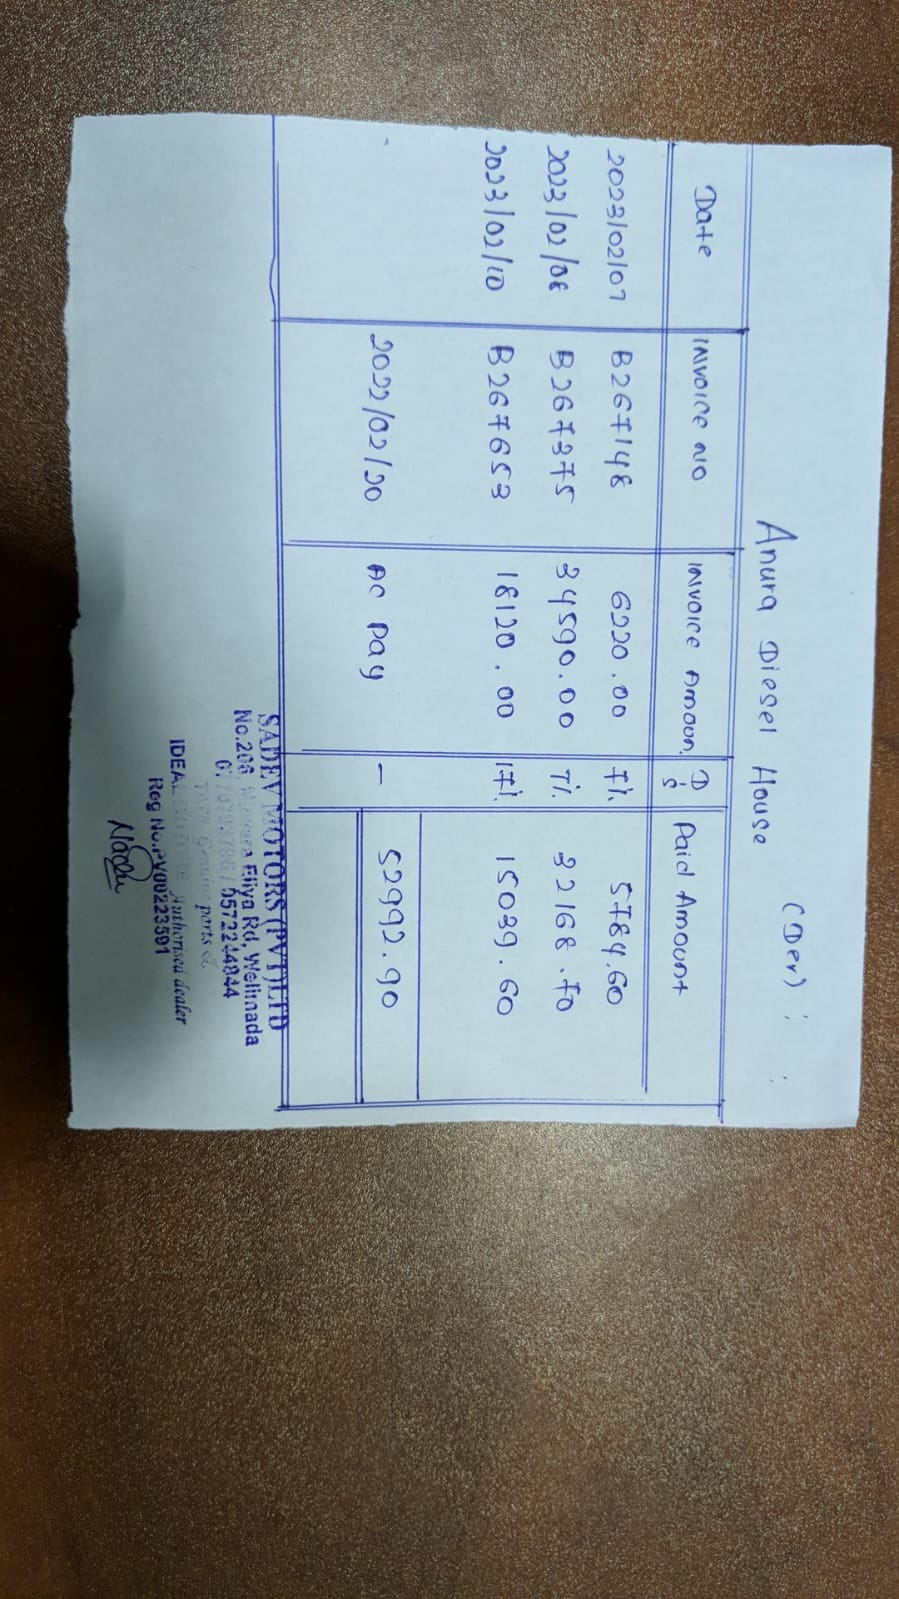 Anura Diesel House (Der) : :
Date INVOICE NO INVOICE Amoon. Dis Paid Amount
2023/02/07 B267148 6220.00 7% 5784.60
2023/02/08 B267375 34590.00 7% 32168.70
2023/02/10 B267653 18120.00 17% 15039.60
2022/02/20 AC Pay – 52992.90
SADEV MOTORS (PVT) LTD
No.206 Eliya Rd, Welimada
0572244844
TATA Genuine parts &
IDEAL Authorised dealer
Reg No.PV00223591